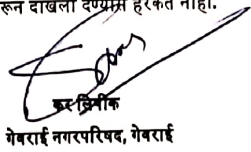 रून दाखला देण्यास हरकत नाही.
कर निरीक्षक
गेवराई नगरपरिषद, गेवराई